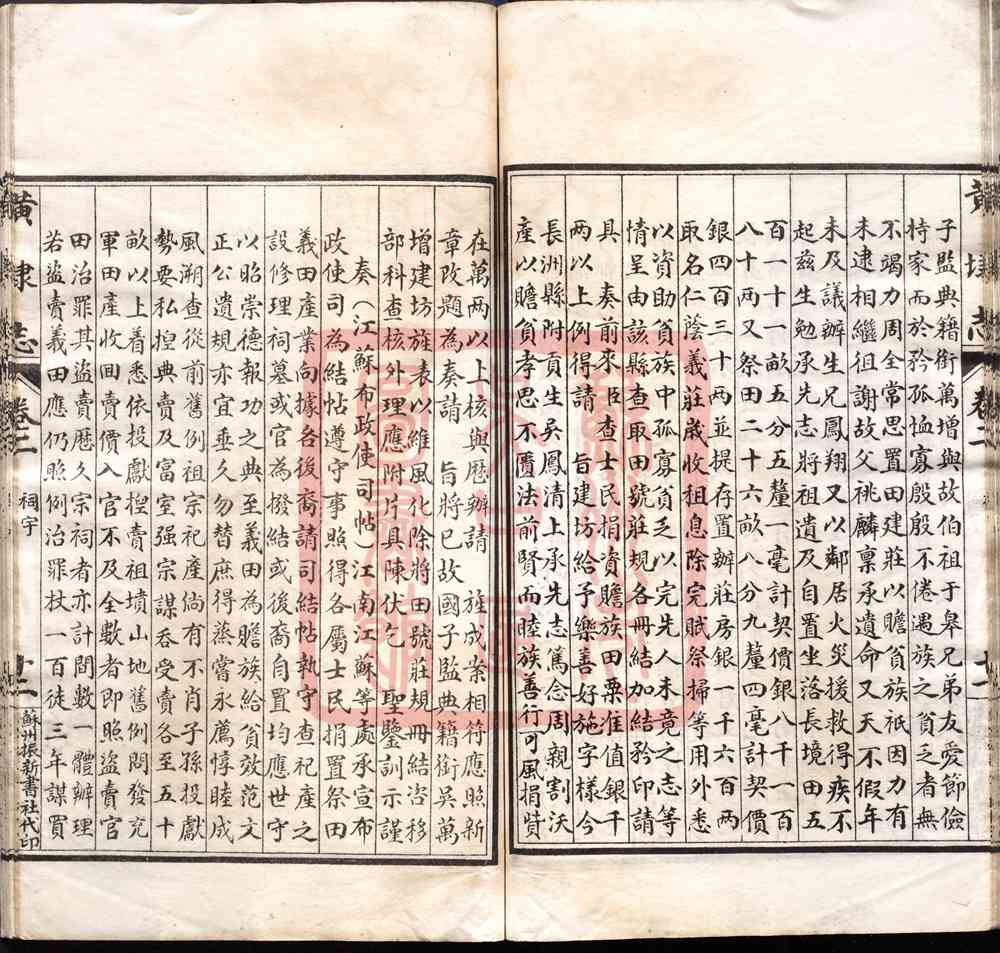 黃埭志 卷二 十一
子監典籍銜萬增與故伯祖于皋兄弟友愛節儉
持家而於矜孤恤寡殷殷不倦遇族之貧乏者無
不竭力周全常思置田建莊以贍貧族祇因力有
未逮相繼徂謝故父祧麟稟承遺命又天不假年
未及議辦生兄鳳翔又以鄰居火災援救得疾不
起茲生勉承先志將祖遺及自置坐落長境田五
百一十一畝五分五釐一毫計契價銀八千一百
八十兩又祭田二十六畝八分九釐四毫計契價
銀四百三十兩並提存置辦莊房銀一千六百兩
取名仁蔭義莊歲收租息除完賦祭掃等用外悉
以資助貧族中孤寡貧乏以完先人未竟之志等
情呈由該縣查取田號莊規各冊結加結矜印請
具奏前來臣查士民捐資贍族田粟准值銀千
兩以上例得請旨建坊給予樂善好施字樣今
長洲縣附貢生吳鳳清上承先志篤念周親割沃
產以贍貧孝思不匱法前賢而睦族善行可風捐貲
在萬兩以上核與歷辦請旌成案相符應照新
章改題為奏請旨將已故國子監典籍銜吳萬
增建坊旌表以維風化除將田號莊規冊結咨移
部科查核外理應附片具陳伏乞聖鑒訓示謹
奏（江蘇布政使司帖）江南江蘇等處承宣布
政使司為結帖遵守事照得各屬士民捐置祭田
義田產業向據各後裔請司結帖執守查祀產之
設修理祠墓或官為撥結或後裔自置均應世守
以昭崇德報功之典至義田為贍族給貧效范文
正公遺規亦宜垂久勿替庶得蒸嘗永薦惇睦成
風溯查從前舊例祖宗祀產倘有不肖子孫投獻
勢要私揑典賣及富室强宗謀吞受賣各至五十
畝以上着悉依投獻揑賣祖墳山地舊例問發充
軍田產收回賣價入官不及全數者即照盜賣官
田治罪其盜賣歷久宗祠者亦計間數一體辦理
若盜賣義田應仍照例治罪杖一百徒三年謀買
黃埭志 卷二 祠宇 十二 蘇州振新書社代印